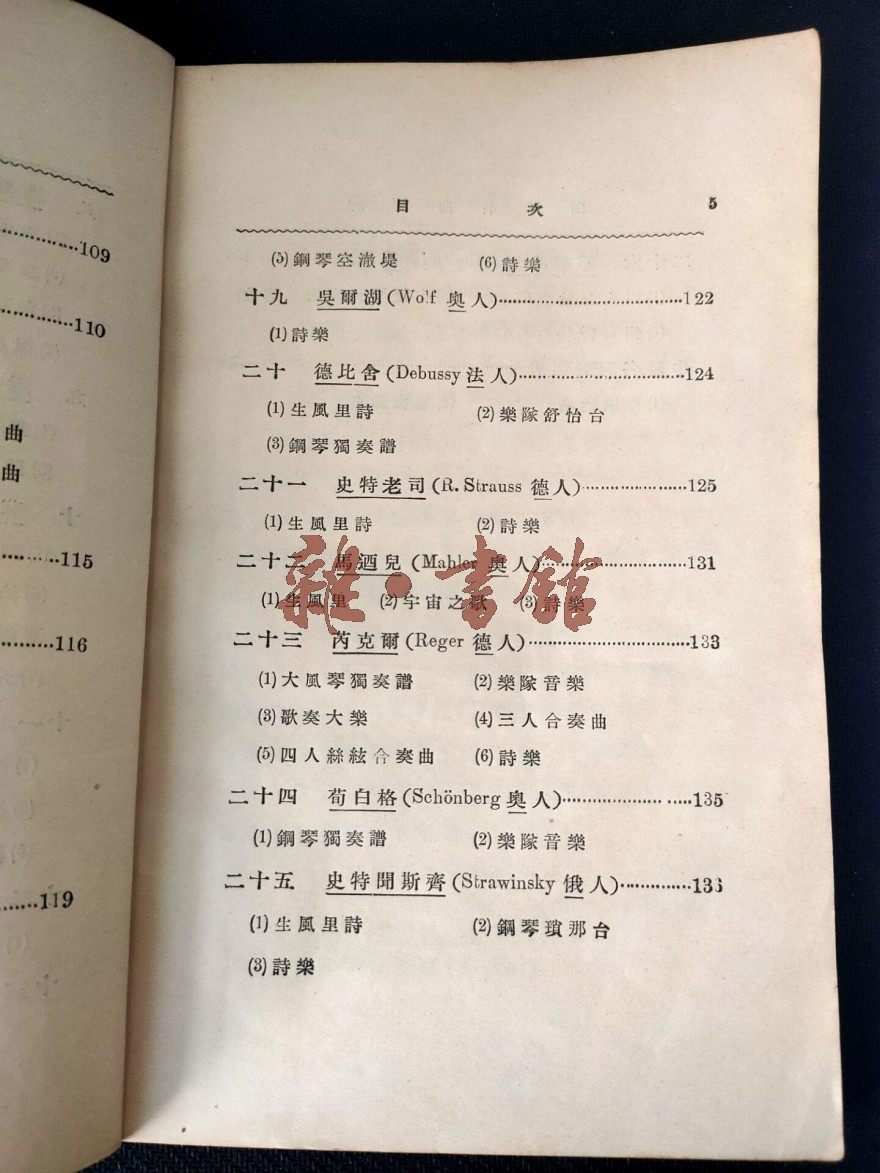 109
110
曲
曲
115
116
119
目 次 5
(5)鋼琴空澈堤 (6)詩樂
十九 吳爾湖(Wolf 奥人)······122
(1)詩樂
二十 德比舍(Debussy 法人)······124
(1)生風里詩 (2)樂隊舒怡台
(3)鋼琴獨奏譜
二十一 史特老司(R. Strauss 德人)······125
(1)生風里詩 (2)詩樂
二十二 馬酒兒(Mahler 奥人)······131
(1)生風里 (2)宇宙之歌 (3)詩樂
二十三 芮克爾(Reger 德人)······133
(1)大風琴獨奏譜 (2)樂隊音樂
(3)歌奏大樂 (4)三人合奏曲
(5)四人絲絃合奏曲 (6)詩樂
二十四 荀白格(Schönberg 奥人)······135
(1)鋼琴獨奏譜 (2)樂隊音樂
二十五 史特聞斯齊(Strawinsky 俄人)······136
(1)生風里詩 (2)鋼琴瑣那台
(3)詩樂
雜·書館